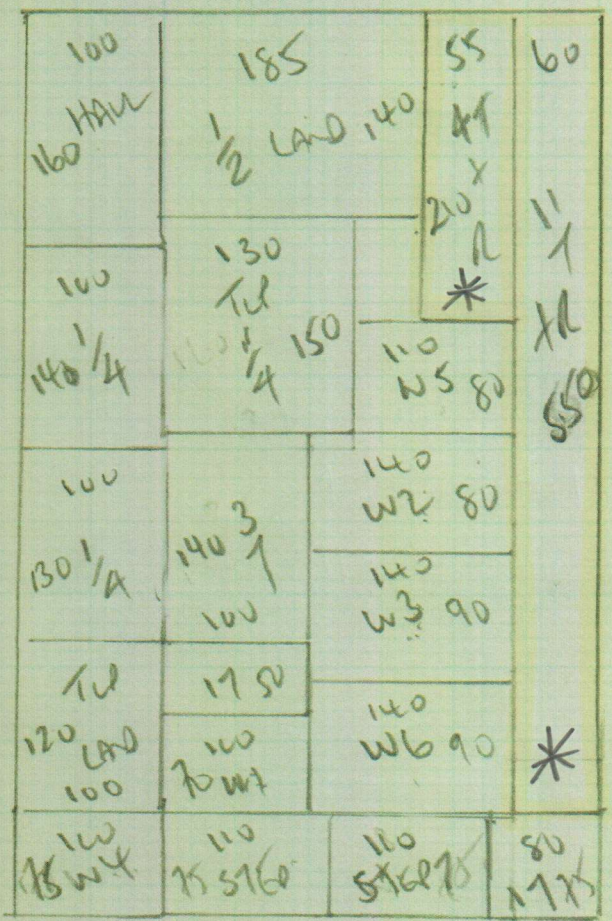 100
HALL
160
185
1/2 LAND 140
55
4T
X
210
R
*
60
11
T
XR
550
*
100
140 1/4
130
TUP
1/4 150
110
W5 80
100
130 1/4
140 3
T
100
140
W2 80
140
W3 90
140
W6 90
TUP
120 LAND
100
1T 50
100
70 W7
100
75 W4
110
75 STEP
110
STEP 75
80
1T 75